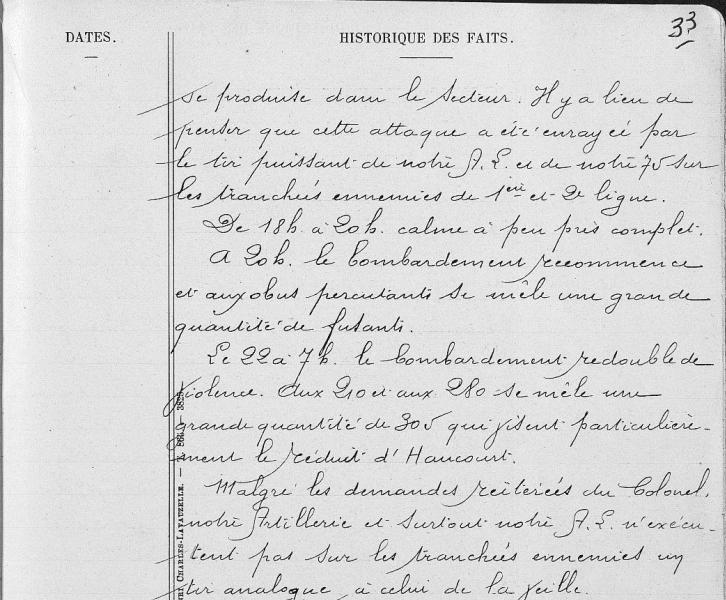 33
DATES.
HISTORIQUE DES FAITS.
se produise dans le secteur. Il y a lieu de
penser que cette attaque a été enrayée par
le tir puissant de notre A. L. et de notre 75 sur
les tranchées ennemies de 1ère et 2e ligne.
De 18h. à 20h. calme à peu près complet.
A 20h. le bombardement recommence
et aux obus percutants se mêle une grande
quantité de fusants.
Le 22 à 7h. le bombardement redouble de
violence. Aux 210 et aux 280 se mêle une
grande quantité de 305 qui visent particulière-
ment le réduit d'Haucourt.
Malgré les demandes réitérées du Colonel,
notre Artillerie et surtout notre A. L. n'exécu-
tent pas sur les tranchées ennemies un
tir analogue à celui de la veille.
CHARLES-LAVAUZELLE.